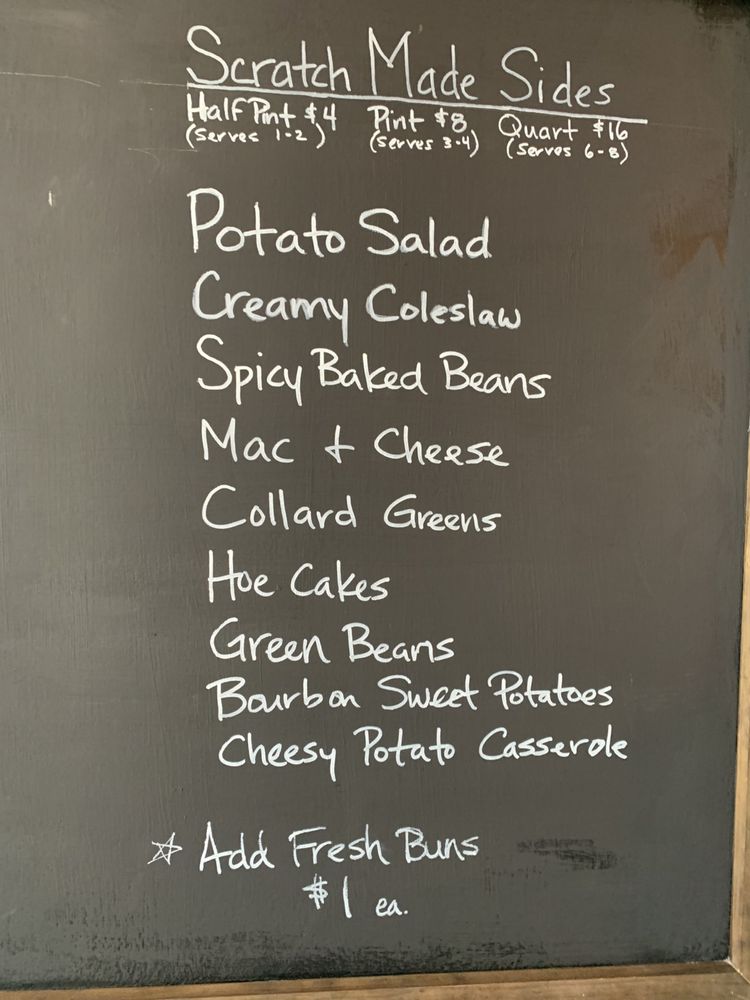 Scratch Made Sides
Half Pint $4 Pint $8 Quart $16
(serves 1-2) (serves 3-4) (serves 6-8)
Potato Salad
Creamy Coleslaw
Spicy Baked Beans
Mac + Cheese
Collard Greens
Hoe Cakes
Green Beans
Bourbon Sweet Potatoes
Cheesy Potato Casserole
☆ Add Fresh Buns
$1 ea.